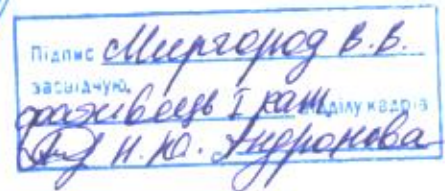 Підпис Миргород В.В.
засвідчую,
фахівець І кат. відділу кадрів
Н.Ю. Андронова